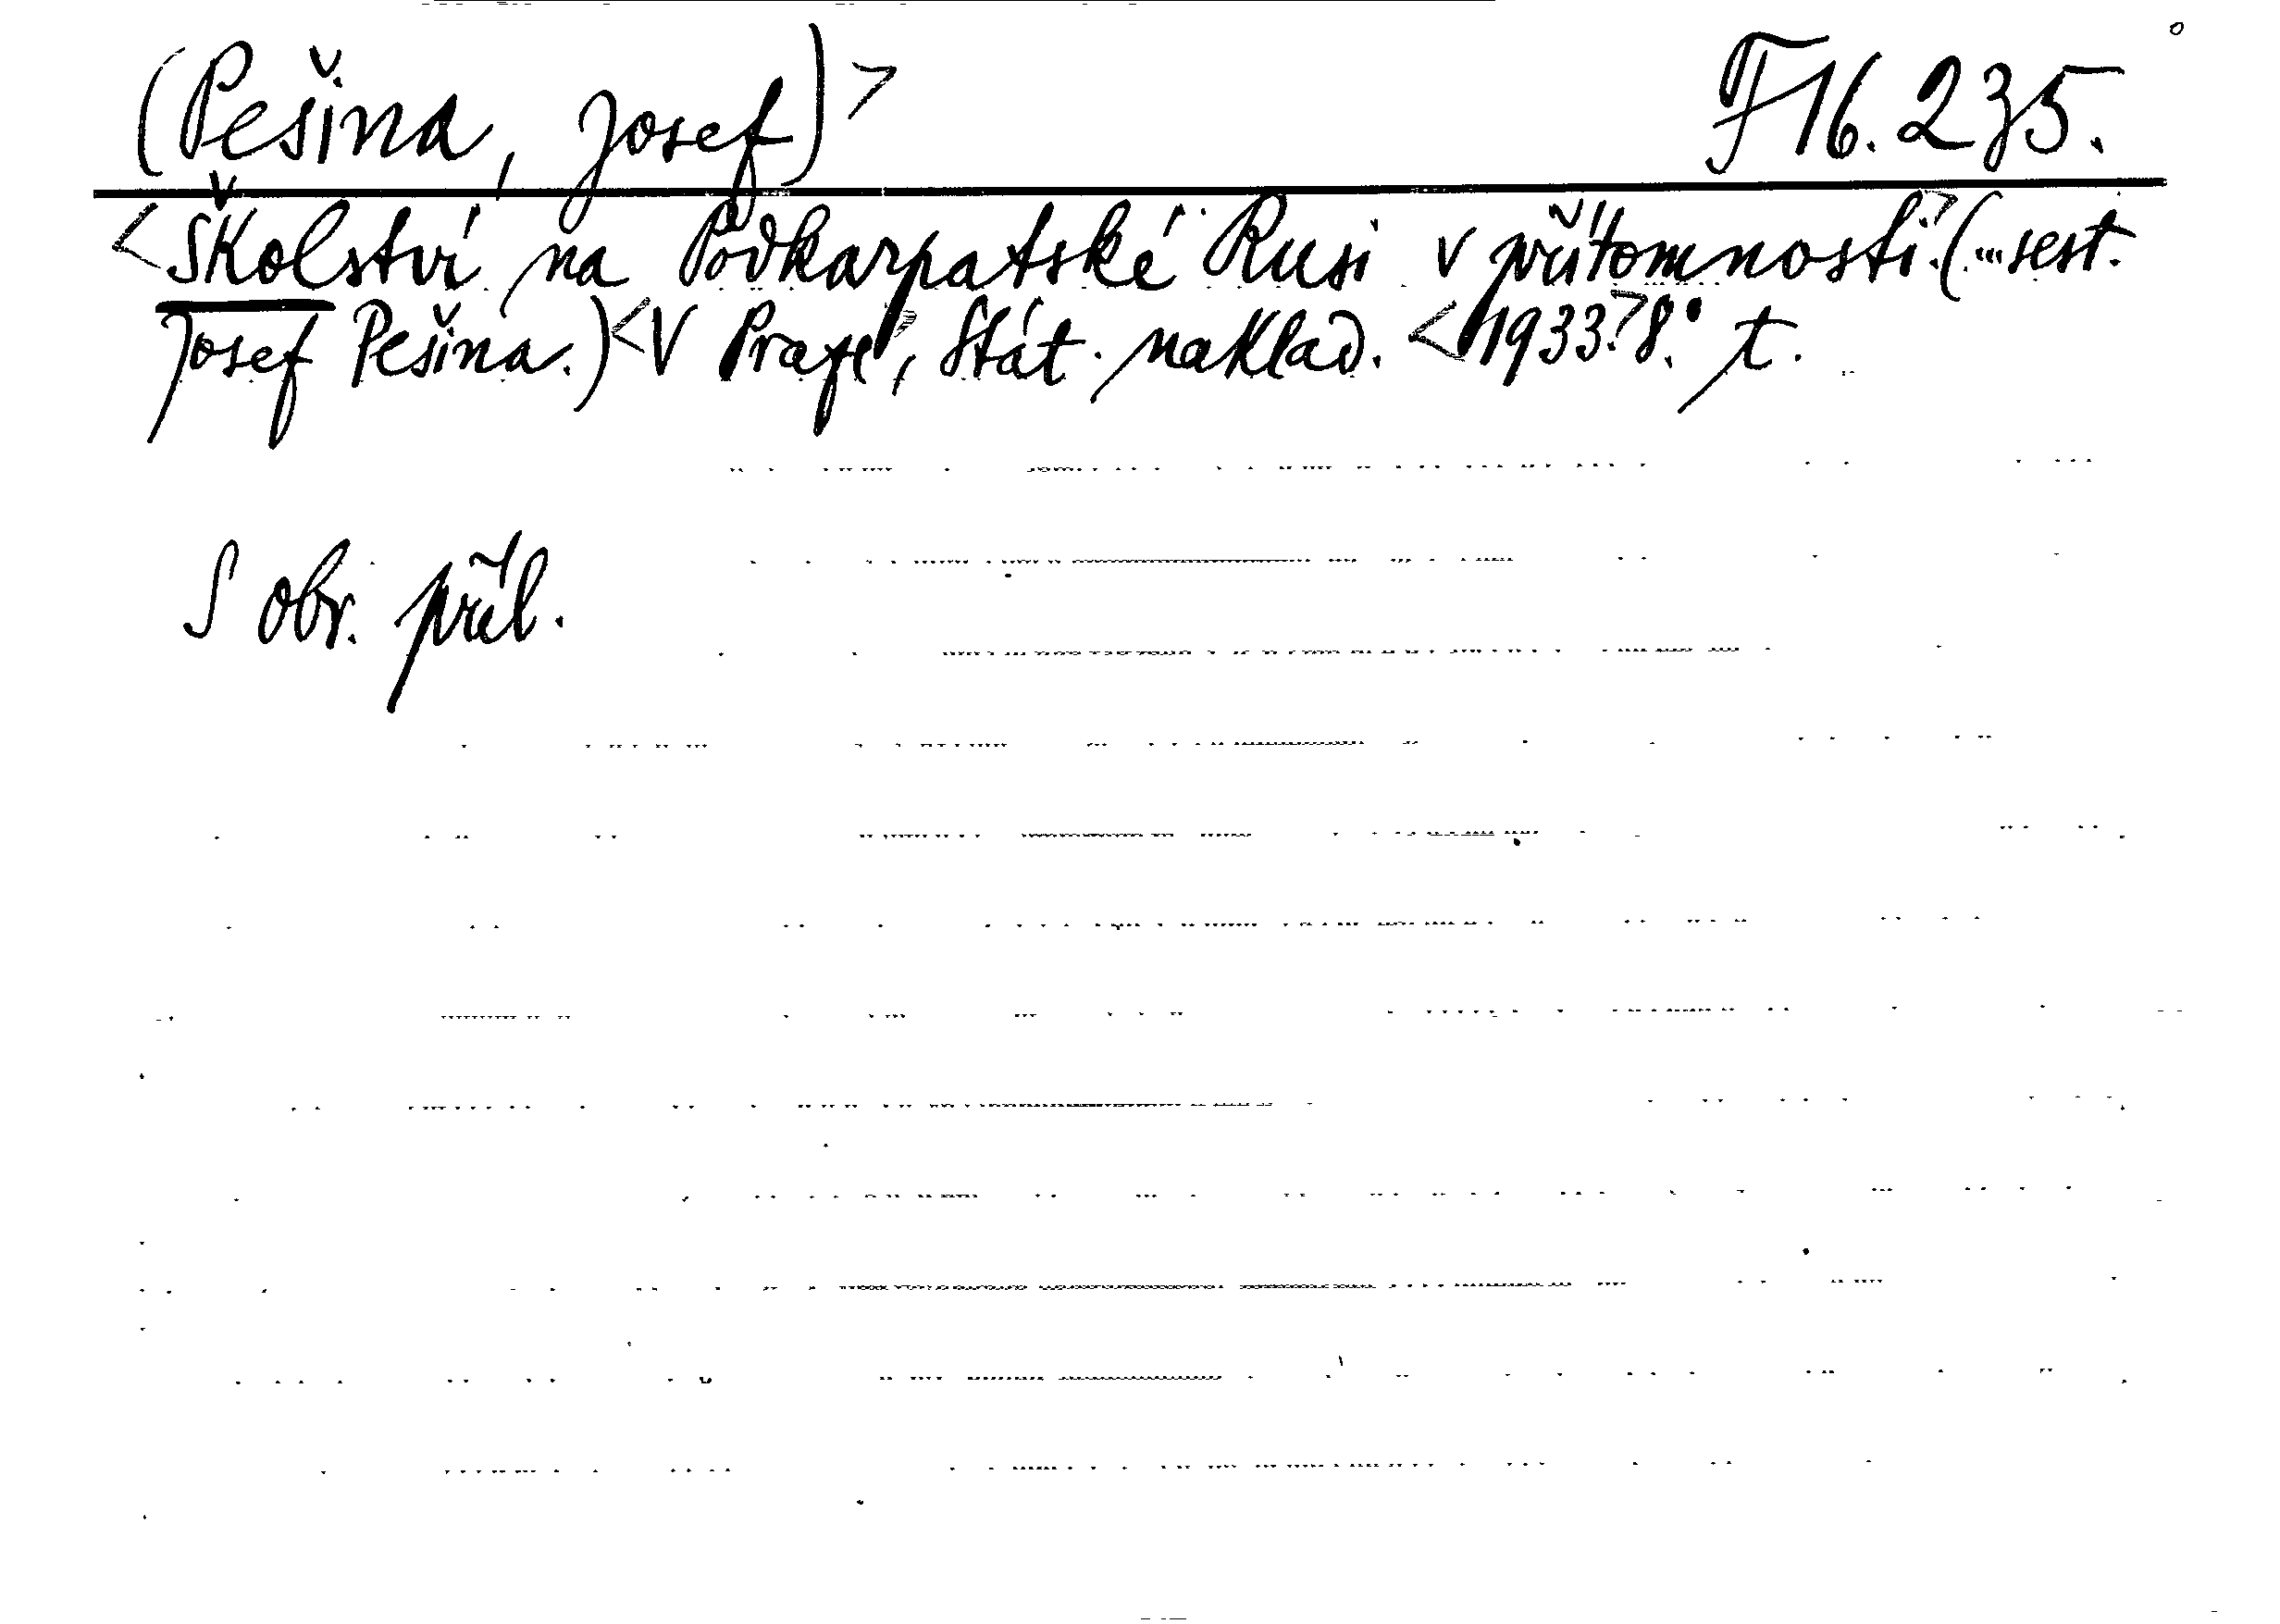 (Pešina, Josef)> F 16.235.
<Školství na Podkarpatské Rusi v přítomnosti.>(...sest.
Josef Pešina.)<V Praze>, Stát. naklad. <1933.>8°. t.
S obr. příl.